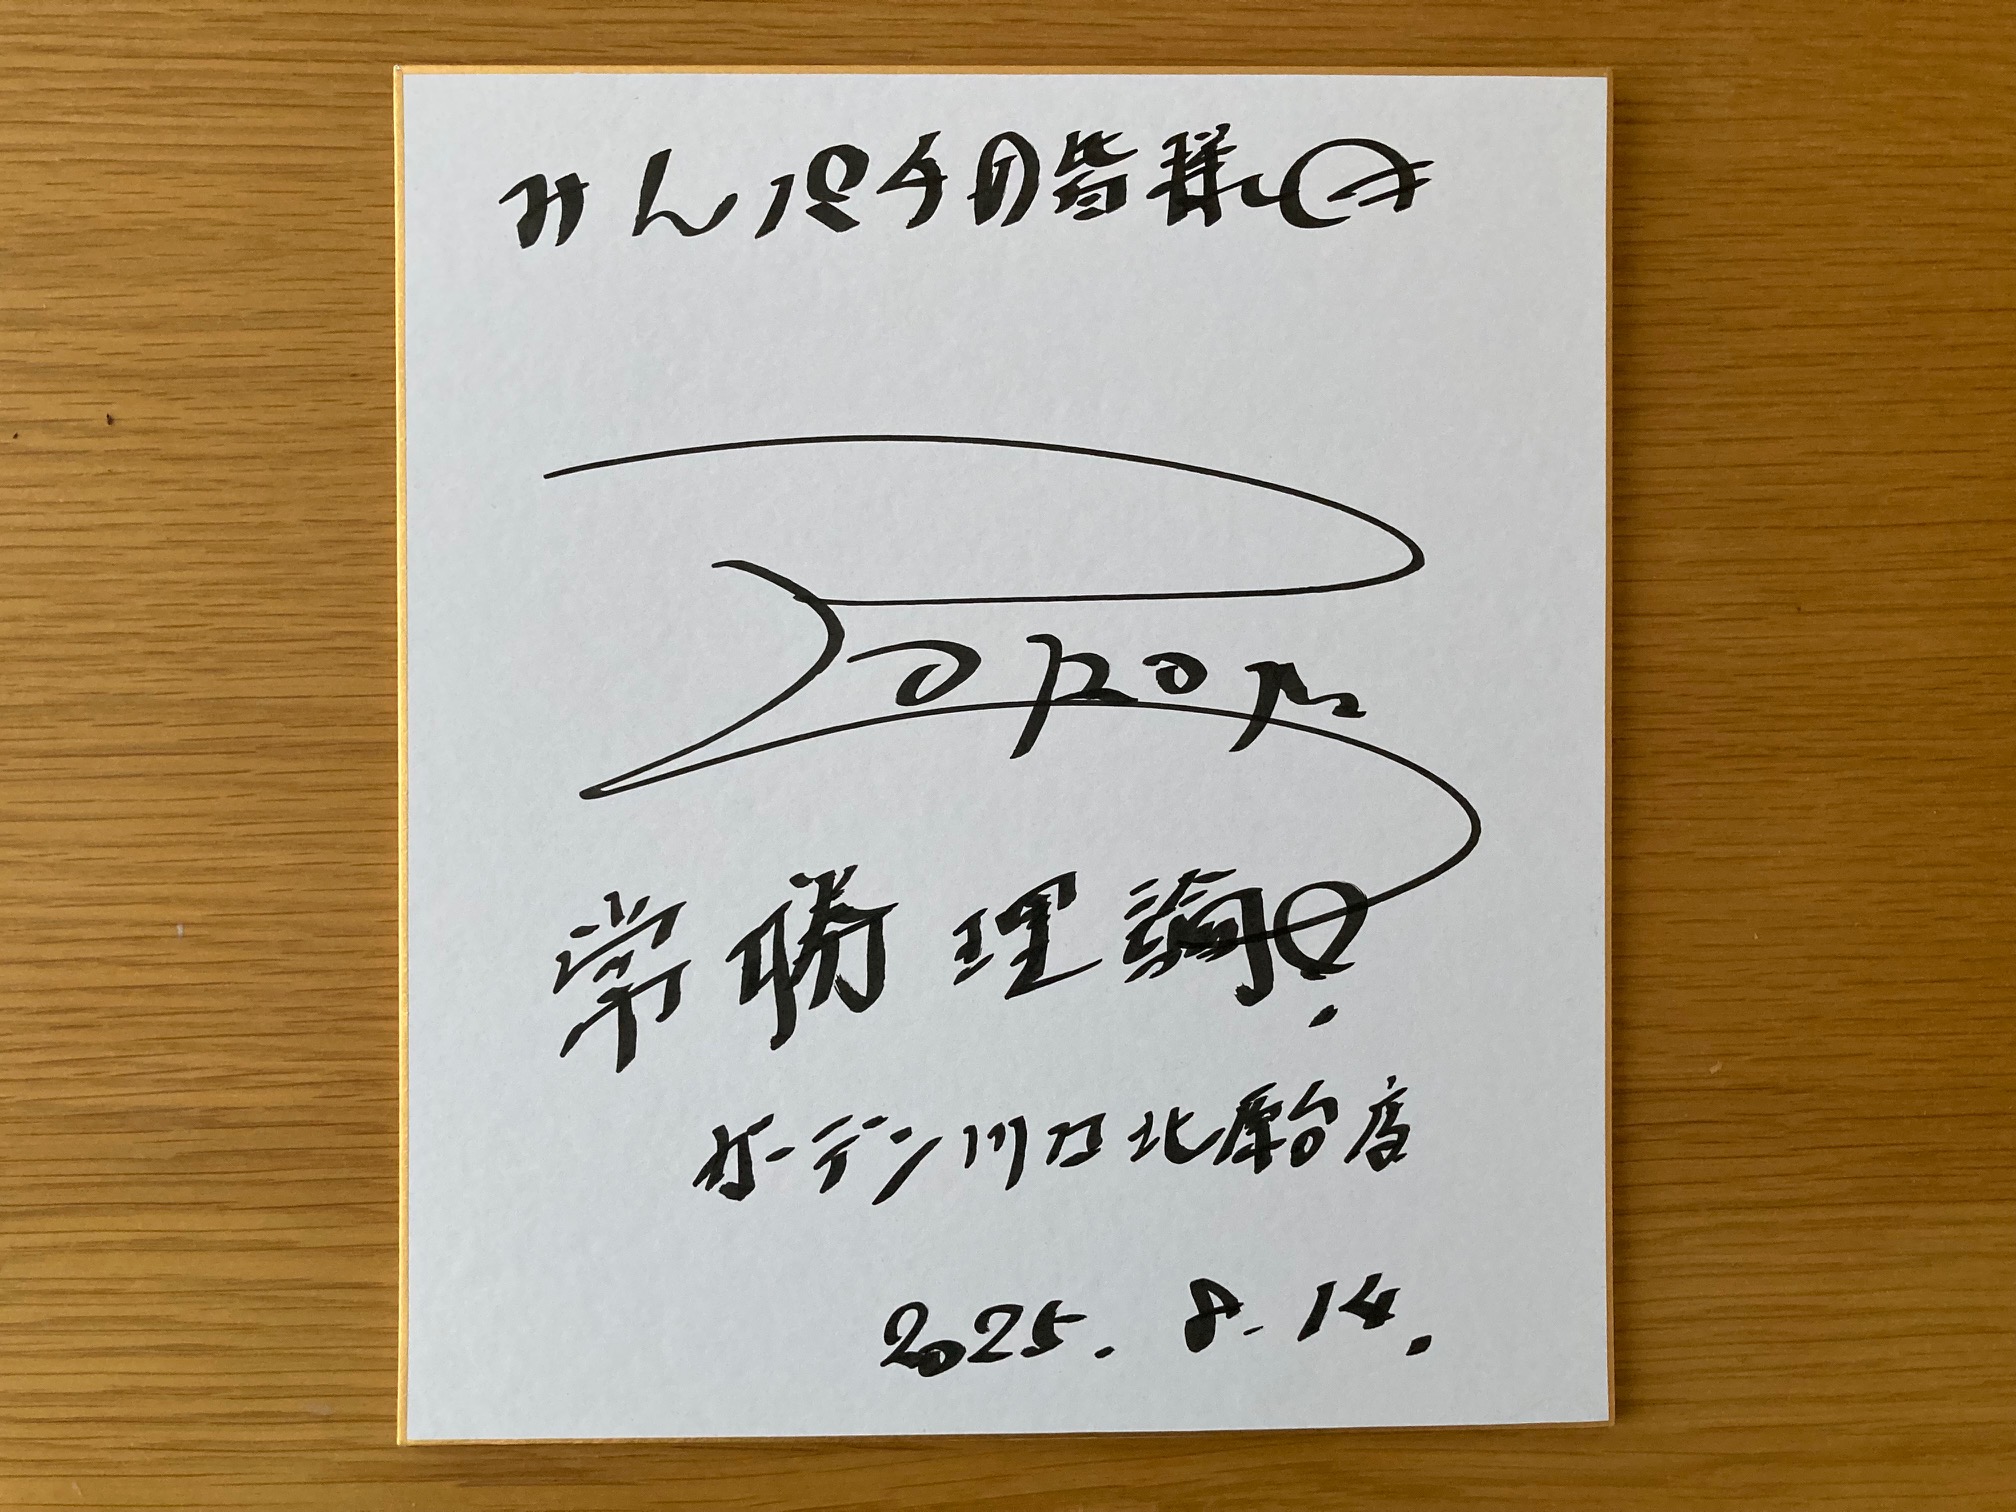 みんパチの皆様へ
常勝理論!
ガーデン川口北原台店
2025.8.14.